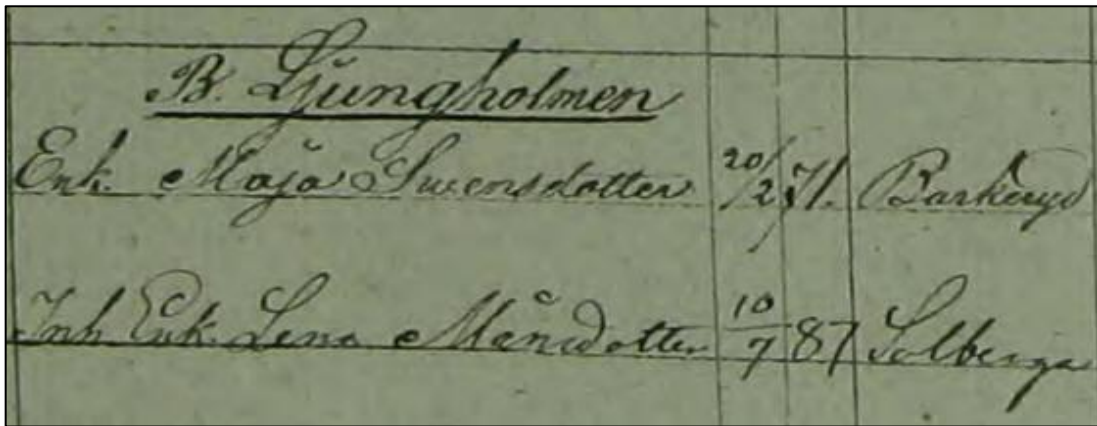 B. Ljungholmen
Enk. Maja Swensdotter 20/2 71. Barkeryd
Inh. Enk. Lena Månsdotter 10/7 87 Solberga